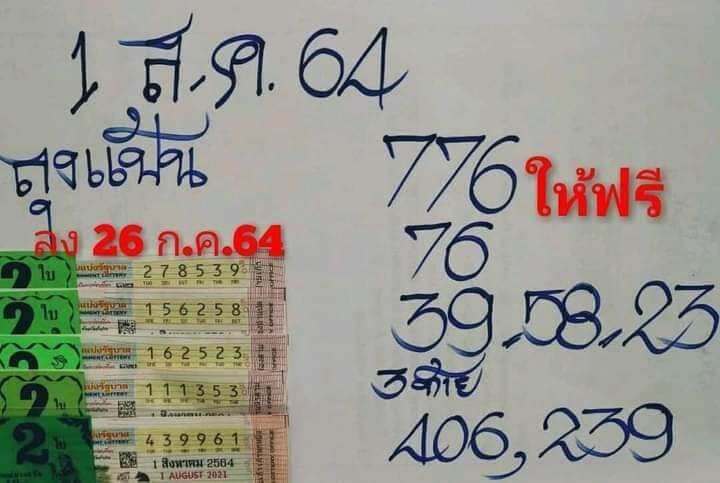 1 ส.ค. 64
ลุงแป้น
ลง 26 ก.ค.64
776 ให้ฟรี
76
39.58.23
3 ท้าย
406, 239
2 ใบ
278539
NMENT LOTTERY
2 ใบ
156258
2 ใบ
162523
2 ใบ
111353
2 ใบ
439961
1 สิงหาคม 2564
1 AUGUST 2021